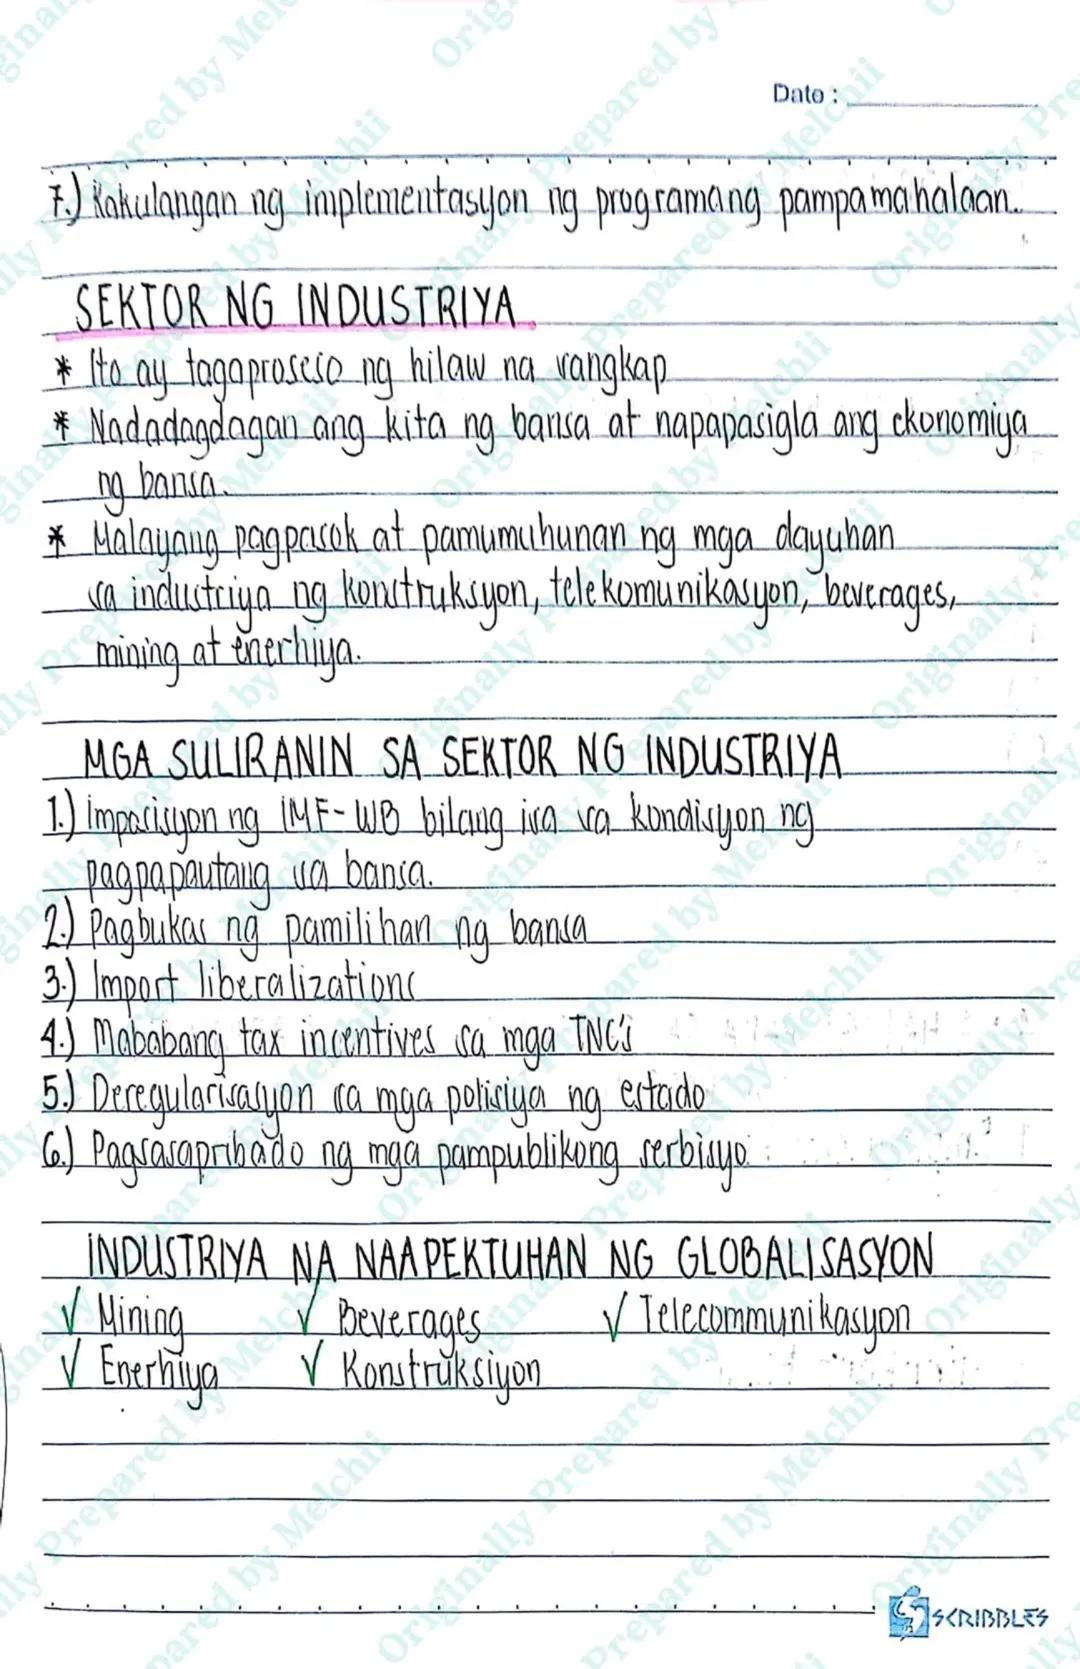 Date :
7.) Kakulangan ng implementasyon ng programang pampamahalaan.
SEKTOR NG INDUSTRIYA
* Ito ay tagaproseso ng hilaw na sangkap
* Nadadagdagan ang kita ng bansa at napapasigla ang ekonomiya
ng bansa.
* Malayang pagpasok at pamumuhunan ng mga dayuhan
sa industriya ng konstruksyon, telekomunikasyon, beverages,
mining at enerhiya.
MGA SULIRANIN SA SEKTOR NG INDUSTRIYA
1.) Imposisyon ng IMF-WB bilang isa sa kondisyon ng
pagpapautang sa bansa.
2.) Pagbukas ng pamilihan ng bansa
3.) Import liberalizations
4.) Mababang tax incentives sa mga TNC's
5.) Deregularisasyon sa mga polisiya ng estado
6.) Pagsasapribado ng mga pampublikong serbisyo.
INDUSTRIYA NA NAAPEKTUHAN NG GLOBALISASYON
✓ Mining ✓ Beverages ✓ Telecommunikasyon
✓ Enerhiya ✓ Konstruksiyon
SCRIBBLES
Originally Prepared by Melchii